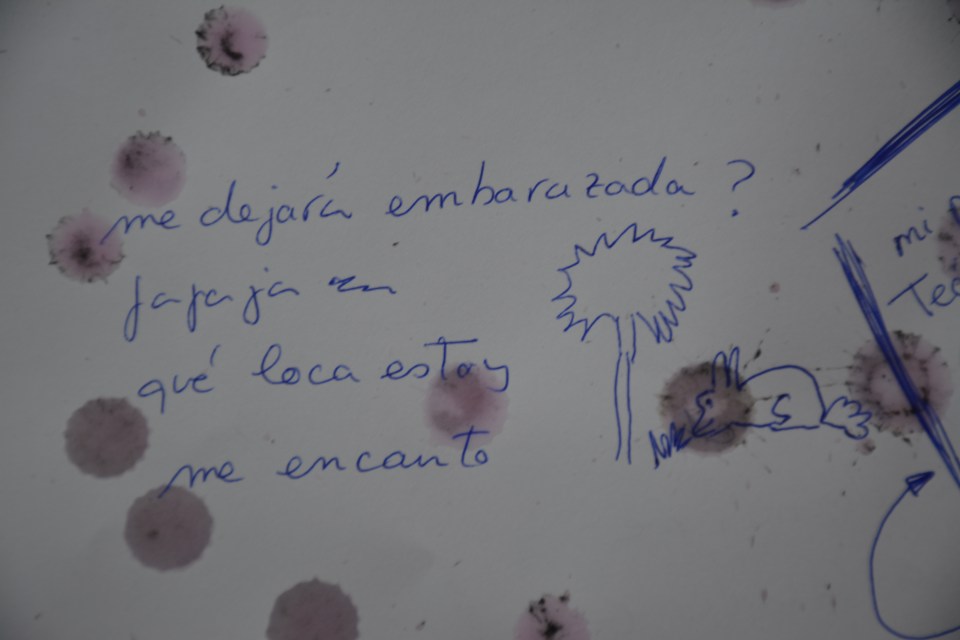 me dejará embarazada ?
jajaja
qué loca estoy
me encanto
mi